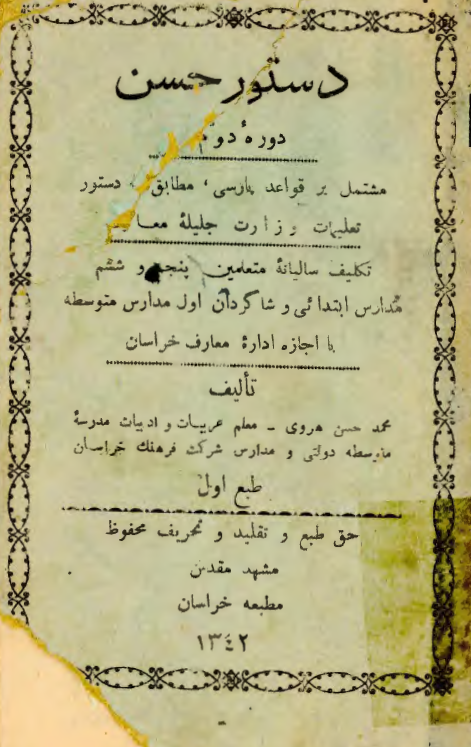 دستور حسن
دورهٔ دوم
مشتمل بر قواعد پارسی، مطابق دستور
تعلیمات وزارت جلیلهٔ
تکلیف سالیانهٔ متعلمین پنجم و ششم
مدارس ابتدائی و شاگردان اول مدارس متوسطه
با اجازه ادارهٔ معارف خراسان
تألیف
محمد حسن هروی ـ معلم عربیات و ادبیات مدرسهٔ
متوسطه دولتی و مدارس شرکت فرهنك خراسان
طبع اول
حق طبع و تقلید و تحریف محفوظ
مشهد مقدس
مطبعه خراسان
۱۳٤۲